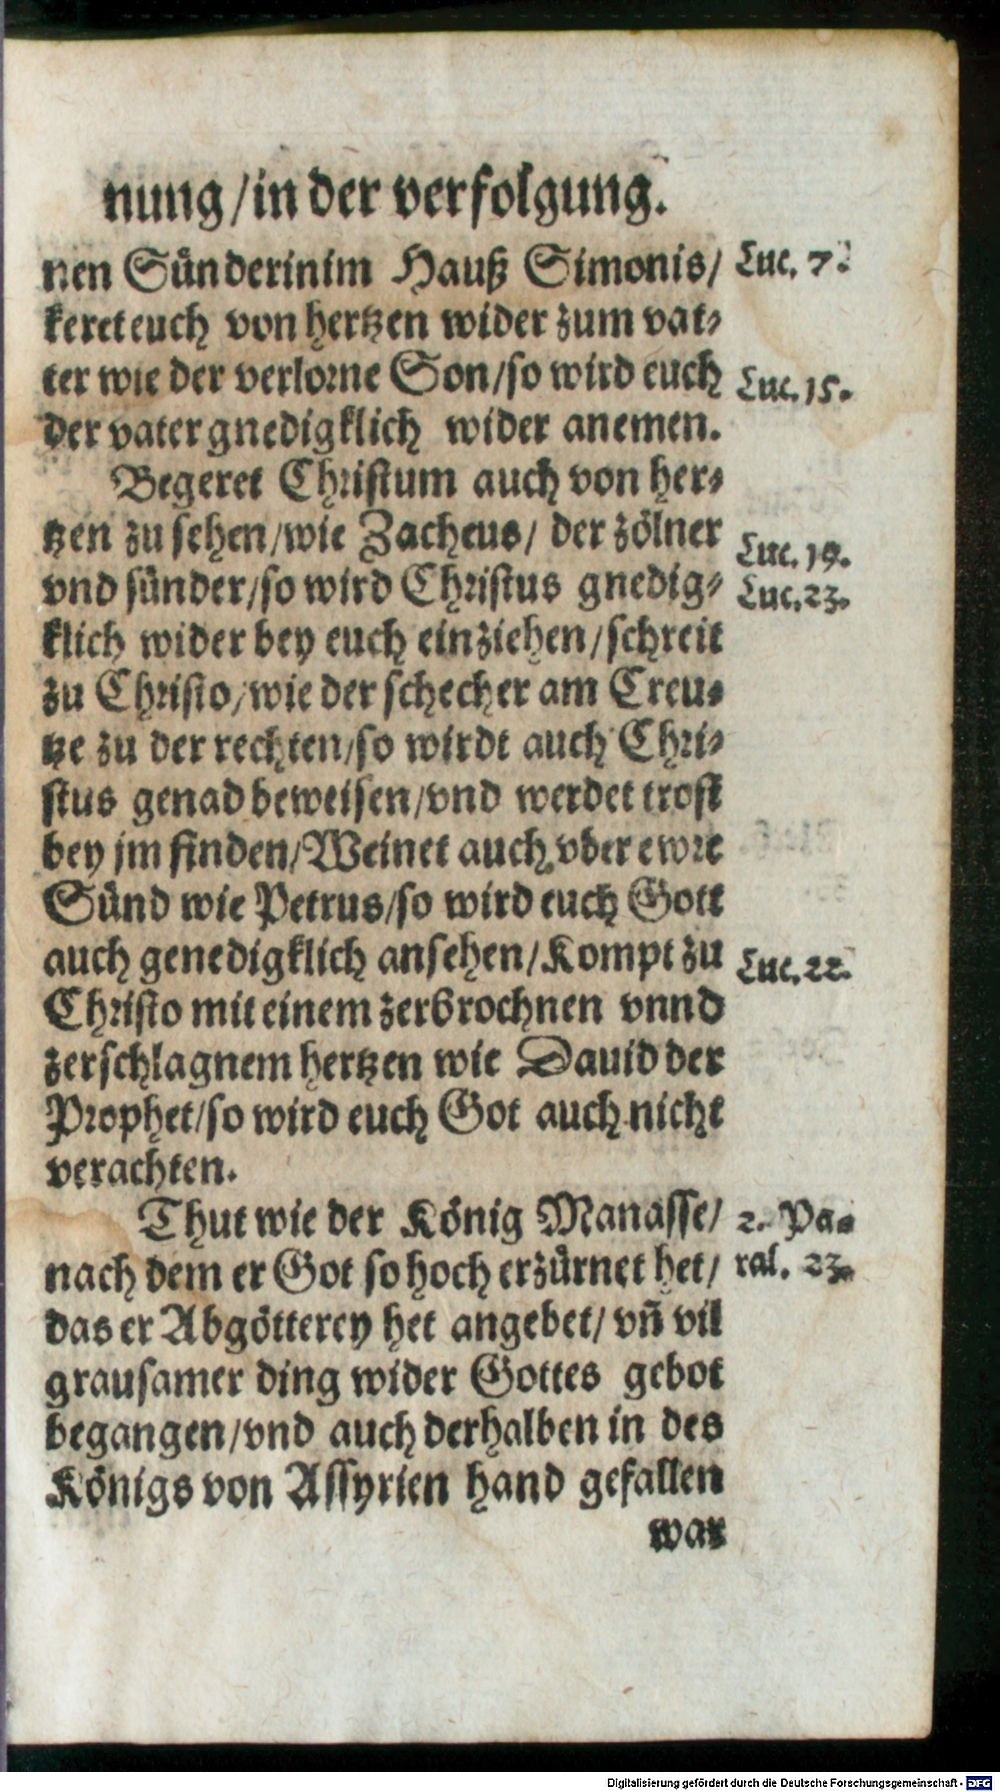 nung/in der verfolgung.
nen Sünderinim Hauß Simonis/
Luc. 7.
keret euch von hertzen wider zum vat-
ter wie der verlorne Son/so wird euch
Luc. 15.
der vater gnedigklich wider anemen.
Begeret Christum auch von her-
tzen zu sehen/wie Zacheus/ der zölner
Luc. 19.
vnd sünder/so wird Christus gnedig-
Luc. 23.
klich wider bey euch einziehen/schreit
zu Christo/wie der schecher am Creu-
tze zu der rechten/so wirdt auch Chri-
stus genad beweisen/vnd werdet trost
bey jm finden/Weinet auch vber ewre
Sünd wie Petrus/so wird euch Gott
auch genedigklich ansehen/Kompt zu
Luc. 22.
Christo mit einem zerbrochnen vnnd
zerschlagnem hertzen wie Dauid der
Prophet/so wird euch Got auch nicht
verachten.
Thut wie der König Manasse/
2. Pa-
nach dem er Got so hoch erzürnet het/
ral. 23.
das er Abgötterey het angebet/ vñ vil
grausamer ding wider Gottes gebot
begangen/vnd auch derhalben in des
Königs von Assyrien hand gefallen
war
Digitalisierung gefördert durch die Deutsche Forschungsgemeinschaft - DFG